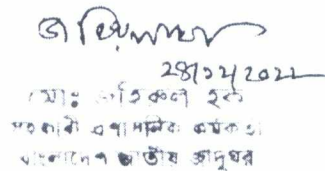 28/12/2022
মোঃ হক
সহকারী প্রশাসনিক কর্মকর্তা
বাংলাদেশ জাতীয় জাদুঘর